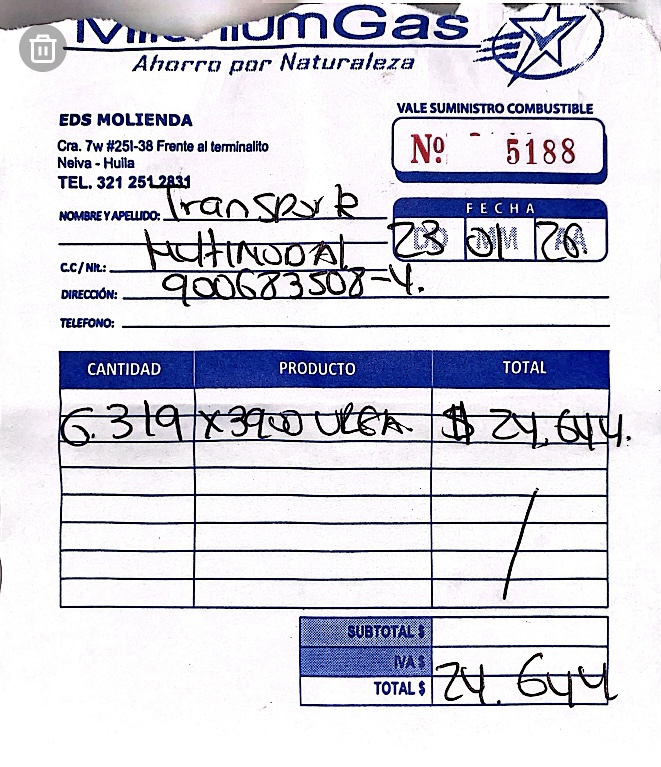 MileniumGas
Ahorro por Naturaleza
EDS MOLIENDA
Cra. 7w #25I-38 Frente al terminalito
Neiva - Huila
TEL. 321 251 2831
VALE SUMINISTRO COMBUSTIBLE
Nº 5188
NOMBRE Y APELLIDO: Transport
Multimodal
FECHA
DD MM AA
23 01 26
C.C / Nit.: 900683508-4.
DIRECCIÓN:
TELEFONO:
CANTIDAD PRODUCTO TOTAL
6.319 x3900 UREA $ 24,644.
SUBTOTAL $
IVA $
TOTAL $ 24.644